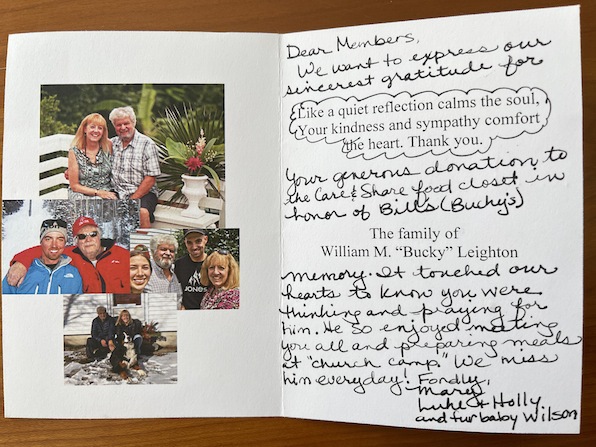 Dear Members,
We want to express our
sincerest gratitude for
Like a quiet reflection calms the soul,
Your kindness and sympathy comfort
the heart. Thank you.
Your generous donation to
the Care & Share food closet in
honor of Bill's (Bucky's)
The family of
William M. “Bucky” Leighton
memory. It touched our
hearts to know you were
thinking and praying for
him. He so enjoyed meeting
you all and preparing meals
at "church camp." We miss
him everyday! Fondly,
Mary,
Luke + Holly
and fur baby Wilson
JONES